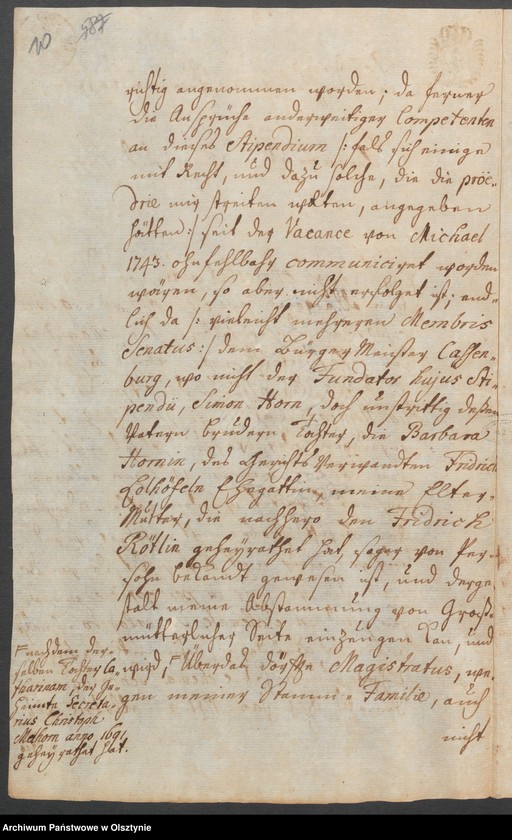 10 587
richtig angenommen worden; da ferner
die Ansprüche anderweitiger Competenten
an dieses Stipendium /: fals sich einige
mit Recht, und dazu solche, die die præe-
drie mir streiten wolten, angegeben
hätten :/ seit der Vacance von Michael
1743. ohnfehlbahr communiciret worden
wären, so aber nicht erfolget ist; end-
lich da /: vieleicht mehreren Membris
Senatus :/ dem Bürger Meister Cassen-
burg, wo nicht der Fundator hujus Sti-
pendii, Simon Horn, doch unstrittig deßen
Vatern Brudern Tochter, die Barbara
Hornin, des Gerichts Verwandten Fridrich
Ehegattin, meine Elter-
Mutter, die nachhero den Fridrich
Rötlin geheyrathet hat, sogar von Per-
sohn bekandt gewesen ist, und derge-
stalt meine Abstammung von Groß-
mütterlicher Seite einzeugen kan, und
wird, Überdas dörffte Magistratus, we-
gen meiner Stamm-Familie, auch
nicht
nachdem der-
selben Tochter Ca-
tharinam, der Ge-
heimte Secreta-
rius Christoph
Melhorn anno 1691
geheyrathet hat.
Archiwum Państwowe w Olsztynie